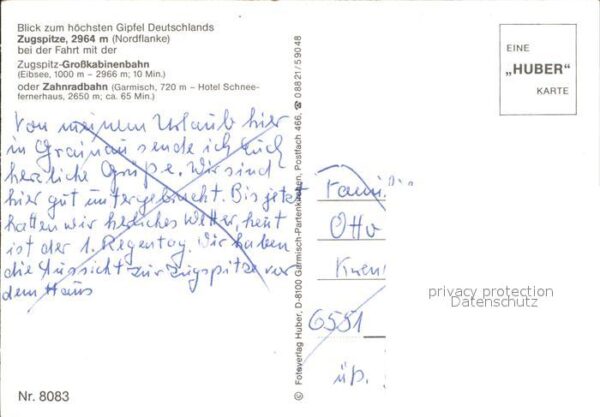 Blick zum höchsten Gipfel Deutschlands
Zugspitze, 2964 m (Nordflanke)
bei der Fahrt mit der
Zugspitz-Großkabinenbahn
(Eibsee, 1000 m – 2966 m; 10 Min.)
oder Zahnradbahn (Garmisch, 720 m – Hotel Schnee-
fernerhaus, 2650 m; ca. 65 Min.)
Von meinem Urlaub hier
in Grainau sende ich Euch
herzliche Grüße. Wir sind
hier gut untergebracht. Bis jetzt
hatten wir herrliches Wetter, heut
ist der 1. Regentag. Wir haben
die Aussicht zur Zugspitze vor
dem Haus
Nr. 8083
© Fotoverlag Huber, D-8100 Garmisch-Partenkirchen, Postfach 466, ☎ 08821/59048
EINE
„HUBER“
KARTE
Fami
Otto
6551
üb.
privacy protection
Datenschutz